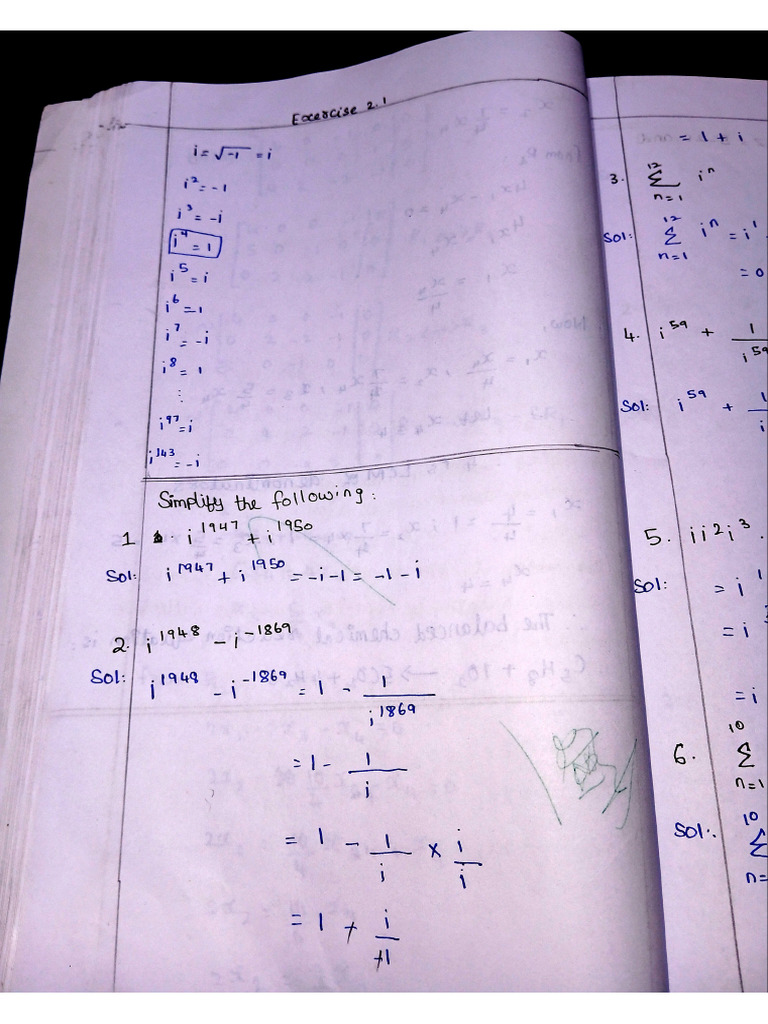 Exercise 2.1
i = √-1 = i
i² = -1
i³ = -i
i⁴ = 1
i⁵ = i
i⁶ = -1
i⁷ = -i
i⁸ = 1
⋮
i⁹⁷ = i
i¹⁴³ = -i
Simplify the following:
1. i¹⁹⁴⁷ + i¹⁹⁵⁰
Sol: i¹⁹⁴⁷ + i¹⁹⁵⁰ = -i-1 = -1-i
2. i¹⁹⁴⁸ - i⁻¹⁸⁶⁹
Sol: i¹⁹⁴⁸ - i⁻¹⁸⁶⁹ = 1 - 1/i¹⁸⁶⁹
= 1 - 1/i
= 1 - 1/i × i/i
= 1 + i/+1
= 1 + i
3. 12 Σ n=1 iⁿ
Sol: 12 Σ n=1 iⁿ = i¹
= 0
4. i⁵⁹ + 1/i⁵⁹
Sol: i⁵⁹ + 1/i
5. i i² i³ .
Sol: = i¹
= i
= i
6. 10 Σ n=1
Sol: 10 Σ n=